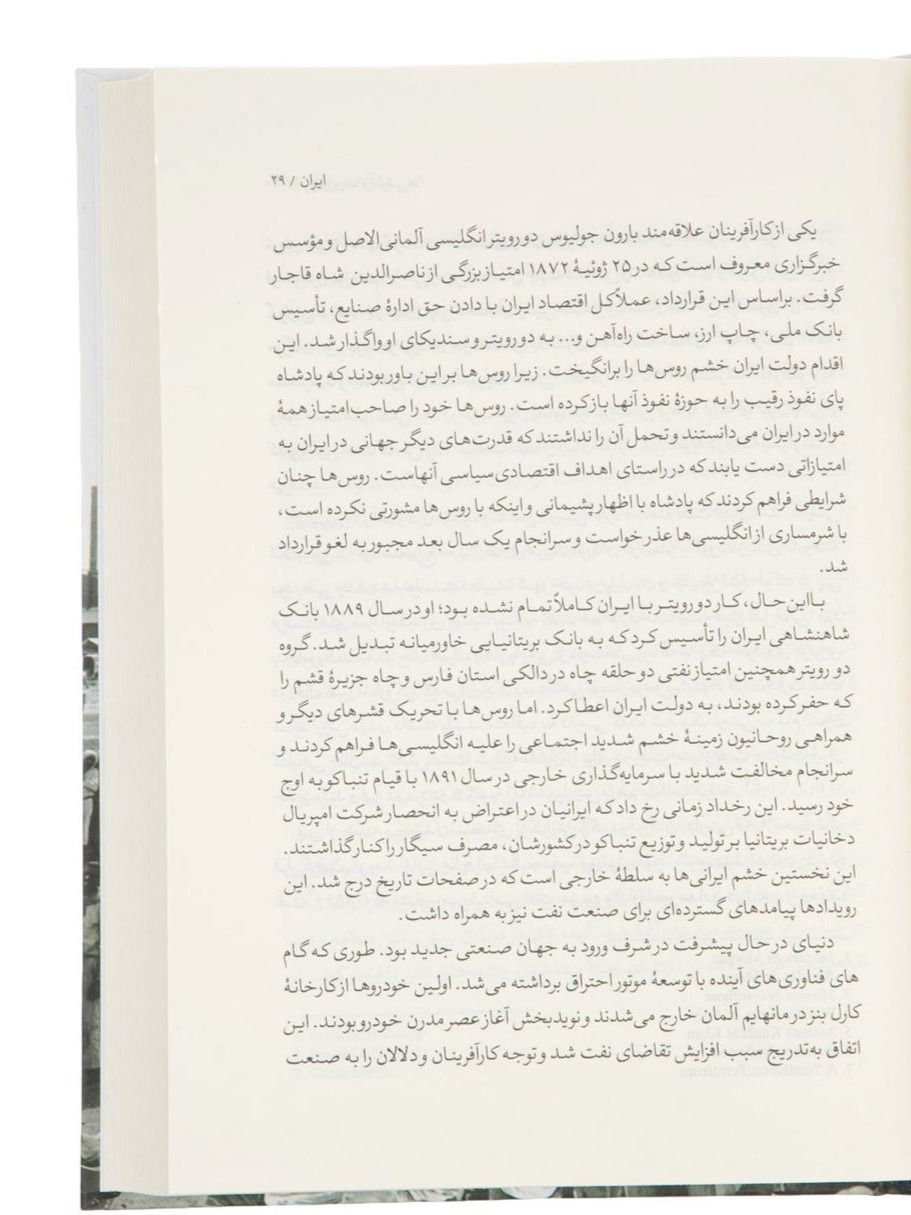 ایران / ۲۹
یکی از کارآفرینان علاقه‌مند بارون جولیوس دو رویتر انگلیسی آلمانی‌الاصل و مؤسس
خبرگزاری معروف است که در ۲۵ ژوئیهٔ ۱۸۷۲ امتیاز بزرگی از ناصرالدین شاه قاجار
گرفت. براساس این قرارداد، عملاً کل اقتصاد ایران با دادن حق ادارهٔ صنایع، تأسیس
بانک ملی، چاپ ارز، ساخت راه‌آهن و... به دو رویتر و سندیکای او واگذار شد. این
اقدام دولت ایران خشم روس‌ها را برانگیخت. زیرا روس‌ها بر این باور بودند که پادشاه
پای نفوذ رقیب را به حوزهٔ نفوذ آنها باز کرده است. روس‌ها خود را صاحب امتیاز همهٔ
موارد در ایران می‌دانستند و تحمل آن را نداشتند که قدرت‌های دیگر جهانی در ایران به
امتیازاتی دست یابند که در راستای اهداف اقتصادی سیاسی آنهاست. روس‌ها چنان
شرایطی فراهم کردند که پادشاه با اظهار پشیمانی و اینکه با روس‌ها مشورتی نکرده است،
با شرمساری از انگلیسی‌ها عذر خواست و سرانجام یک سال بعد مجبور به لغو قرارداد
شد.
با این حال، کار دو رویتر با ایران کاملاً تمام نشده بود؛ او در سال ۱۸۸۹ بانک
شاهنشاهی ایران را تأسیس کرد که به بانک بریتانیایی خاورمیانه تبدیل شد. گروه
دو رویتر همچنین امتیاز نفتی دو حلقه چاه در دالکی استان فارس و چاه جزیرهٔ قشم را
که حفر کرده بودند، به دولت ایران اعطا کرد. اما روس‌ها با تحریک قشرهای دیگر و
همراهی روحانیون زمینهٔ خشم شدید اجتماعی را علیه انگلیسی‌ها فراهم کردند و
سرانجام مخالفت شدید با سرمایه‌گذاری خارجی در سال ۱۸۹۱ با قیام تنباکو به اوج
خود رسید. این رخداد زمانی رخ داد که ایرانیان در اعتراض به انحصار شرکت امپریال
دخانیات بریتانیا بر تولید و توزیع تنباکو در کشورشان، مصرف سیگار را کنار گذاشتند.
این نخستین خشم ایرانی‌ها به سلطهٔ خارجی است که در صفحات تاریخ درج شد. این
رویدادها پیامدهای گسترده‌ای برای صنعت نفت نیز به همراه داشت.
دنیای در حال پیشرفت در شرف ورود به جهان صنعتی جدید بود. طوری که گام
های فناوری‌های آینده با توسعهٔ موتور احتراق برداشته می‌شد. اولین خودروها از کارخانهٔ
کارل بنز در مانهایم آلمان خارج می‌شدند و نویدبخش آغاز عصر مدرن خودرو بودند. این
اتفاق به‌تدریج سبب افزایش تقاضای نفت شد و توجه کارآفرینان و دلالان را به صنعت